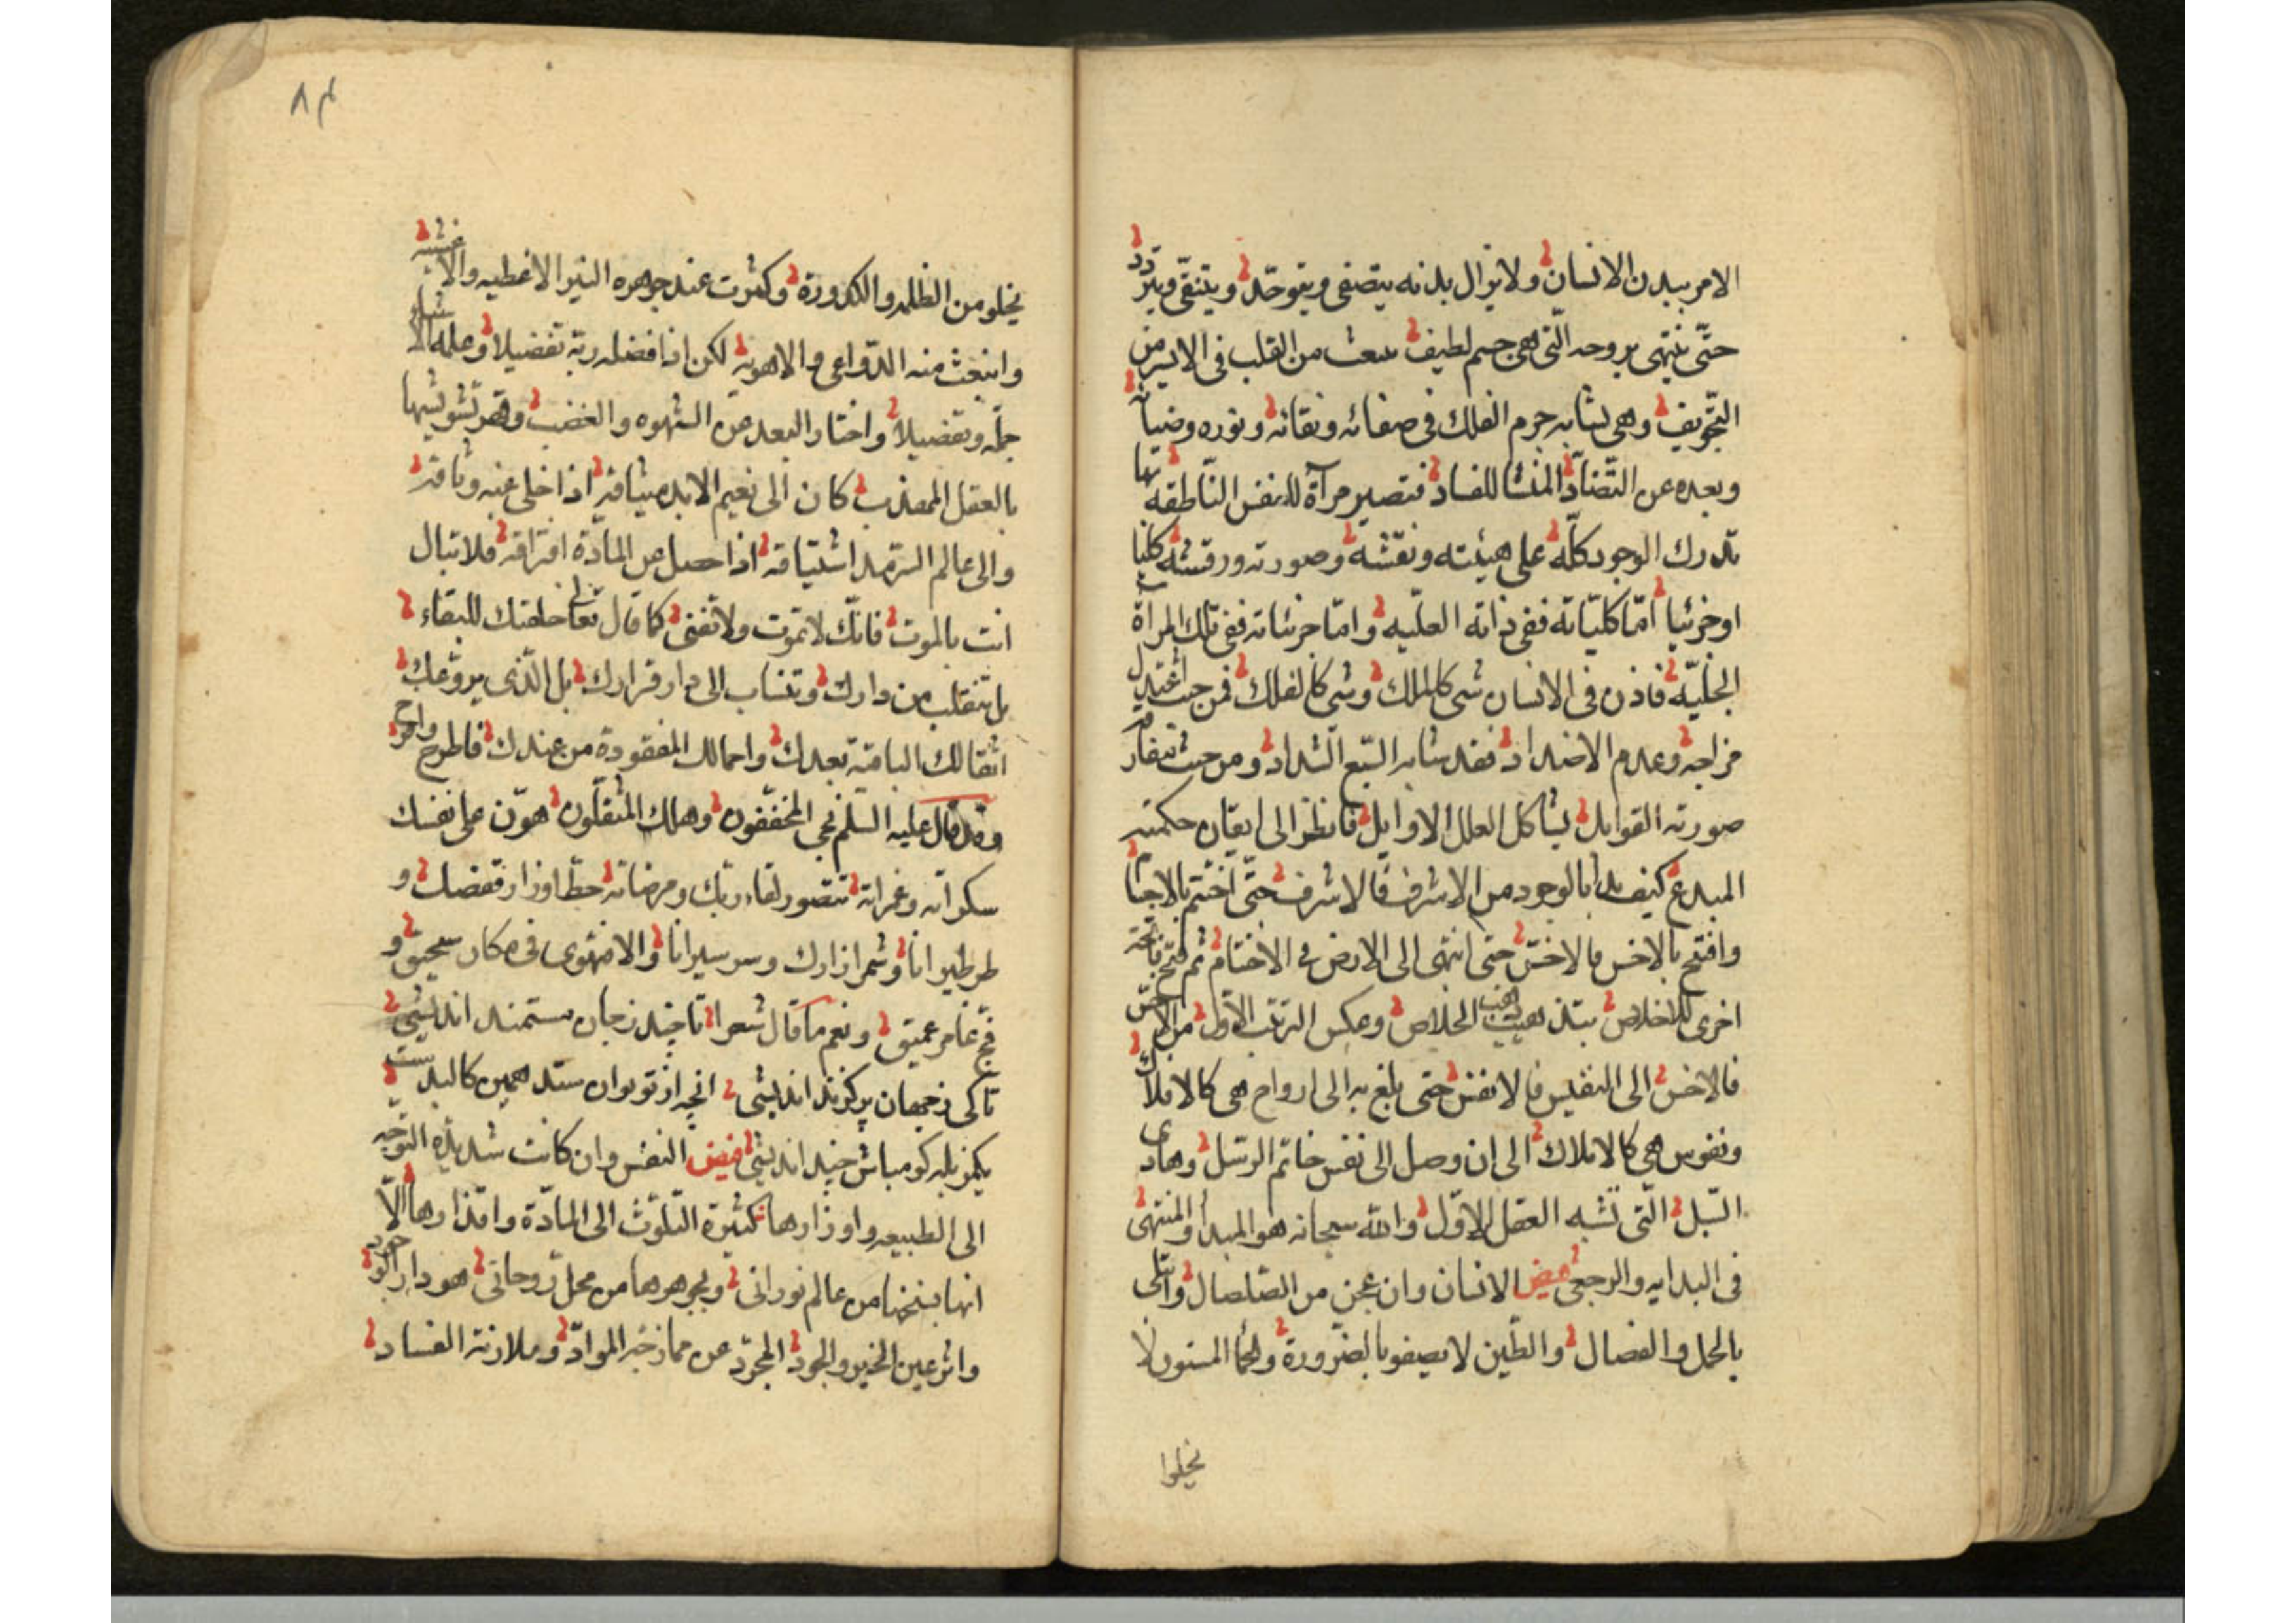 الامر ببدن الانسان ولا يزال بدنه يتصفى ويتوحّد ويتنقّى ويتردد
حتّى ينتهى بروحه الّتى هى جسم لطيف ينبعث من القلب فى الايسر من
التجويف وهى يشابه جرم الفلك فى صفائه ونقائه ونوره وضيائه
وبعده عن التّضادّ المنشا للفساد فتصير مرآة للنفس النّاطقه بها
تدرك الوجود كلّه على هيئته ونقشه وصورته ورقشه كليا
او جزئيا امّا كليّاته ففى ذاته العلّيه وامّا جزئياته ففى تلك المرآة
الجليّه فاذن فى الانسان شى كالملك وشى كالفلك فمن حيث اعتدل
مزاجه وعدم الاضداد فقد شابه السّبع الشداد ومن حيث تفارق
صورته القوابل يشاكل العلل الاوايل فانظر الى ايقان حكمته
المبدع كيف بدا بالوجود من الاشرف فالاشرف حتّى اختتم بالاجسام
وافتتح بالاخس فالاخسّ حتى انتهى الى الارض فى الاختتام ثم فتح فاتحة
اخرى للاخلاص الخلاص وعكس الترتب الاول من الاخسّ
فالاخس الى النفيس فالانفس حتى بلغ به الى ارواح هى كالافلاك
ونفوس هى كالاملاك الى ان وصل الى نفس خاتم الرسل وهادى
السّبل الّتى تشبه العقل الاوّل والله سبحانه هو المبدأ والمنتهى
فى البدايه والرجعى فيض الانسان وان عجن من الصّلصال وابتلى
بالحمل والفصال والطّين لا يصفو بالضرورة والحمأ المسنون لا
نخلوا
٨٤
يخلو من الظلمه والكدورة وكثرت عند جوهره النير الاغطيه والاغشيه
وانبعث منه الدّواعى والاهويه لكن اذا فضله ربّه تفضيلا وعلمه الاشياء
جملة وتفصيلا واختار البعد عن الشهوه والغضب وقهر تشويشها
بالعقل المهذب كان الى نعيم الابد مساقه اذا خلى عنه وثاقه
والى عالم السّرمد اشتياقه اذا حصل عن المادّة افتراقه فلا تبال
انت بالموت فانّك لا تموت ولا تفنى كما قال تعالى خلقتك للبقاء
بل تنقلب من دارك وتنساب الى دار قرارك بل الّذى يروعك
اثقالك الباقية بعدك واحمالك المفقودة من عندك فاطرح واحرج
وقد قال عليه السلم نجى المخففّون وهلك المثقلّون هوّن على نفسك
سكراته وغمراته تتصور لقاء ربّك ومرضاته حطّ اوزار قفصك و
طر طيرانا وشمر ازارك وسر سيرانا والا فتهوى فى مكان سحيق و
فجّ غامر عميق ونعم ما قال شعرا تا چند زجان مستمند انديشى
تا كى زجهان پر گزند انديشى انچه از تو توان ستد همين كالبدست
يك مزبله گو مباش چند انديشى فيض النفس وان كانت شديدة التوجه
الى الطبيعه واوزارها كثيرة التلوّث الى المادّة واقذارها الّا
انها بسنخها من عالم نورانى وبجوهرها من محلّ روحانى هو دار الوجود
واثر عين الخير والجود المجرّد عن ممازجة الموادّ وملازمة الفساد